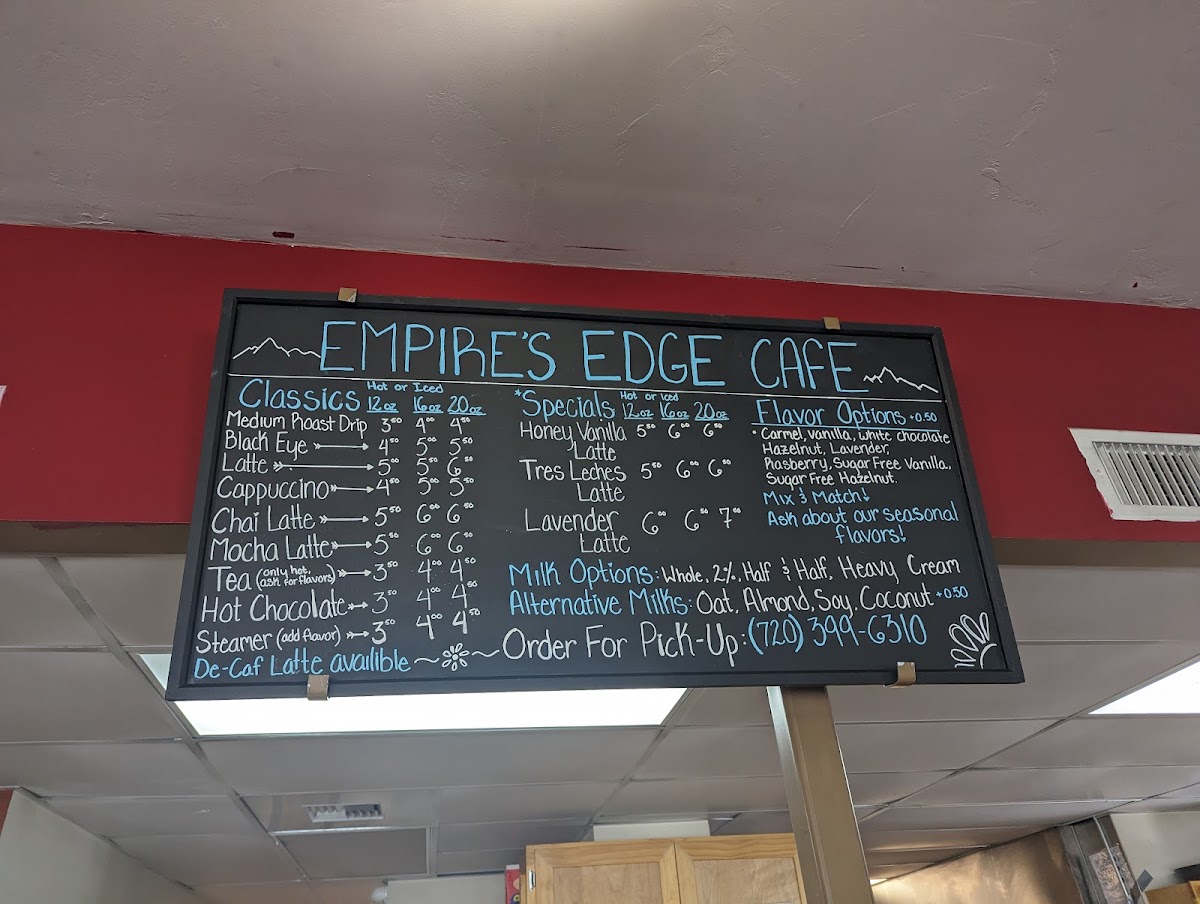 EMPIRE'S EDGE CAFE
Classics Hot or Iced
12oz 16oz 20oz
Medium Roast Drip 3⁵⁰ 4⁰⁰ 4⁵⁰
Black Eye 4⁵⁰ 5⁰⁰ 5⁵⁰
Latte 5⁰⁰ 5⁵⁰ 6⁵⁰
Cappuccino 4⁵⁰ 5⁰⁰ 5⁵⁰
Chai Latte 5⁵⁰ 6⁰⁰ 6⁵⁰
Mocha Latte 5⁵⁰ 6⁰⁰ 6⁵⁰
Tea (only hot, ask for flavors) 3⁵⁰ 4⁰⁰ 4⁵⁰
Hot Chocolate 3⁵⁰ 4⁰⁰ 4⁵⁰
Steamer (add flavor) 3⁵⁰ 4⁰⁰ 4⁵⁰
De-Caf Latte availible
*Specials Hot or Iced
12oz 16oz 20oz
Honey Vanilla 5⁵⁰ 6⁰⁰ 6⁵⁰
Latte
Tres Leches 5⁵⁰ 6⁰⁰ 6⁵⁰
Latte
Lavender 6⁰⁰ 6⁵⁰ 7⁰⁰
Latte
Flavor Options +0.50
• Carmel, vanilla, white chocolate
Hazelnut, Lavender,
Rasberry, Sugar Free Vanilla,
Sugar Free Hazelnut.
Mix & Match!
Ask about our seasonal
flavors!
Milk Options: Whole, 2%, Half & Half, Heavy Cream
Alternative Milks: Oat, Almond, Soy, Coconut +0.50
Order For Pick-Up: (720) 399-6310